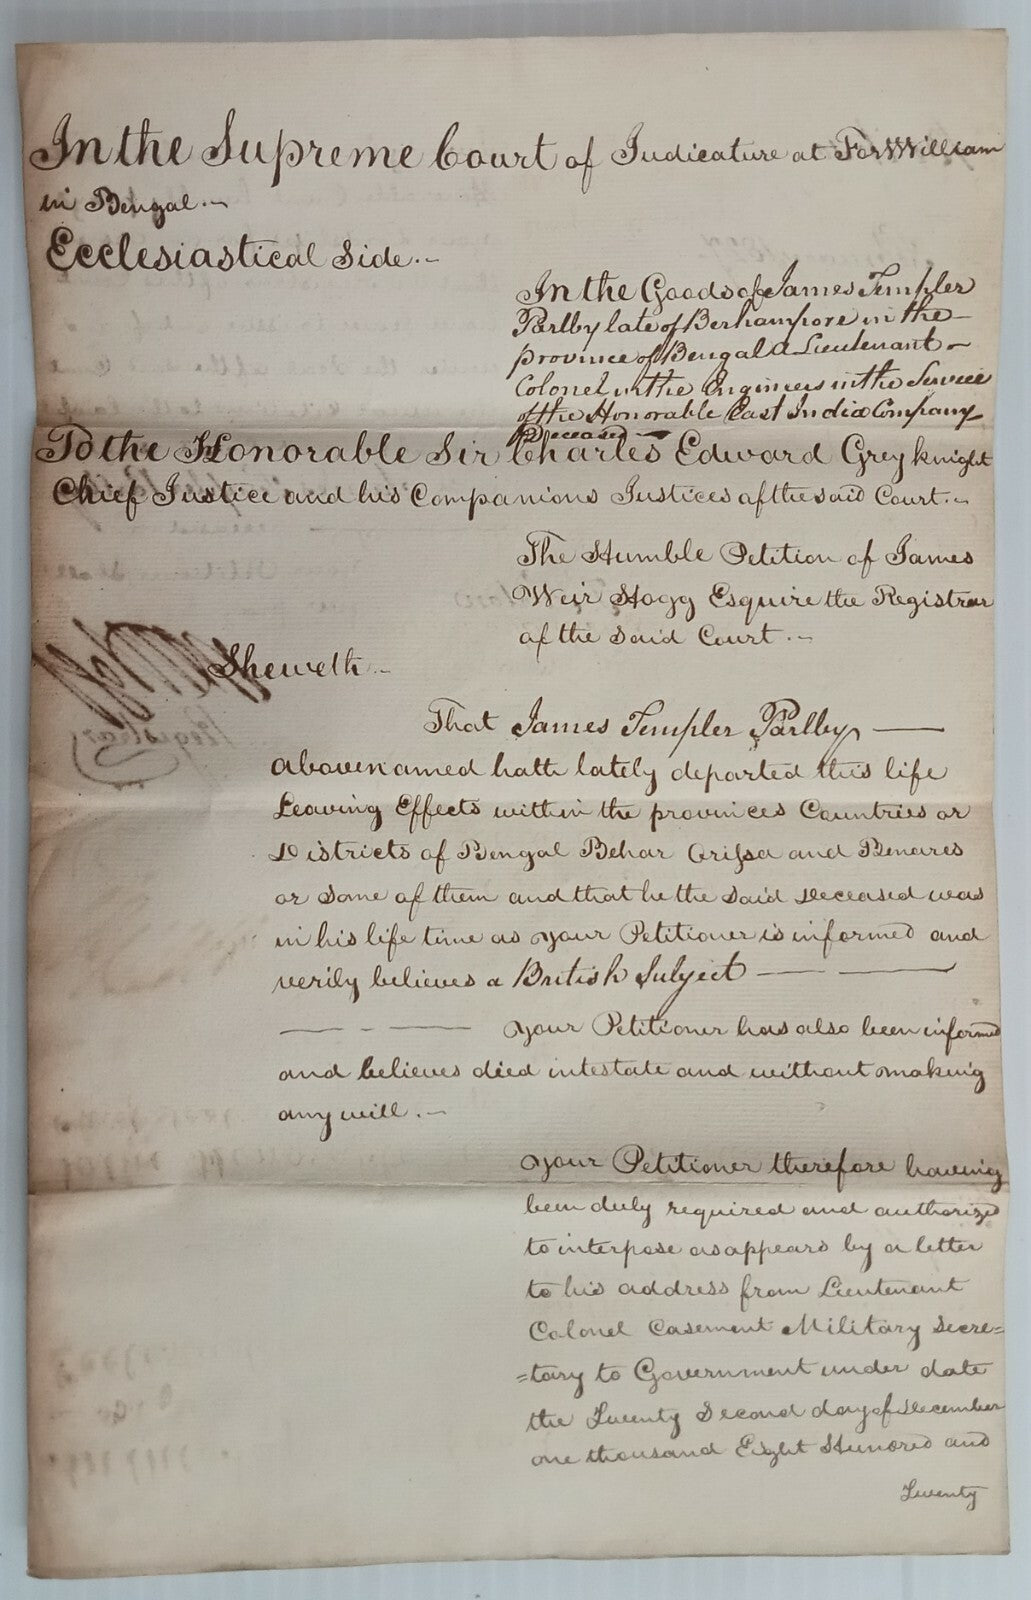 In the Supreme Court of Judicature at Fort William
in Bengal.
Ecclesiastical Side.
In the Goods of James Templer
Parlby late of Berhampore in the
province of Bengal a Lieutenant
Colonel in the Engineers in the Service
of the Honorable East India Company
Deceased
To the Honorable Sir Charles Edward Grey Knight
Chief Justice and his Companions Justices of the said Court.
The Humble Petition of James
Weir Hogg Esquire the Registrar
of the Said Court.
Sheweth
Registrar
That James Templer Parlby
abovenamed hath lately departed this life
Leaving Effects within the provinces Countries or
Districts of Bengal Behar Orissa and Benares
or some of them and that he the Said Deceased was
in his life time as your Petitioner is informed and
verily believes a British Subject
your Petitioner has also been informed
and believes died intestate and without making
any will.
your Petitioner therefore having
been duly required and authorized
to interpose as appears by a letter
to his address from Lieutenant
Colonel Casement Military Secre=
=tary to Government under date
the Twenty Second day of December
one thousand Eight Hundred and
Twenty